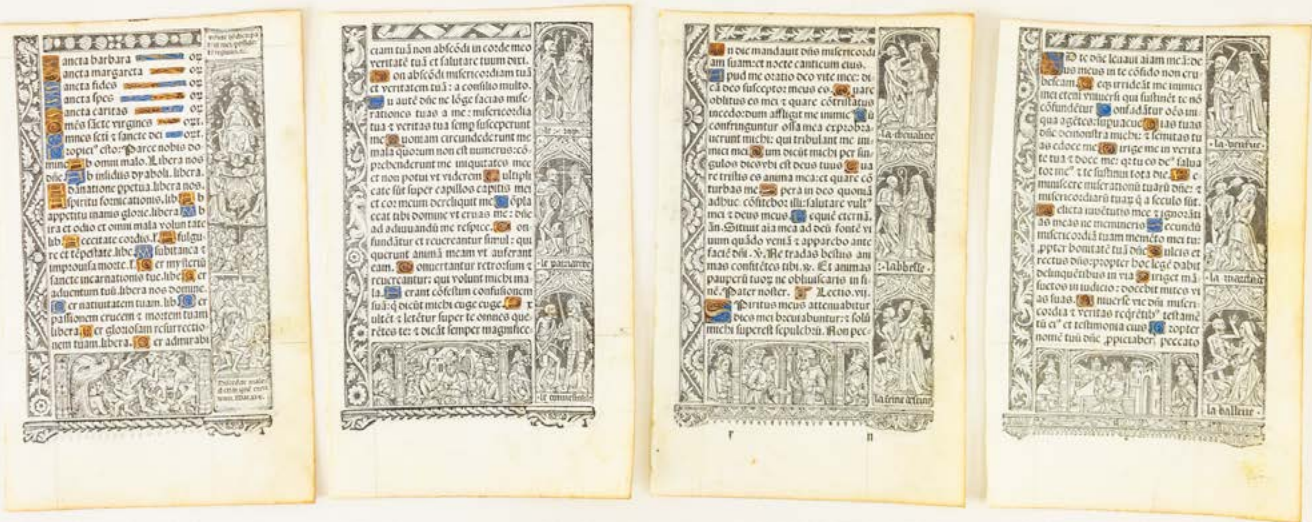 ancta barbara oꝛ
ancta margareta oꝛ
ancta fides oꝛ
ancta spes oꝛ
ancta caritas oꝛ
mēs sācte virgines oꝛt.
mnes scti ⁊ sancte dei oꝛt.
ropici⁹ esto: Parce nobis do
mine b omni malo. Libera nos
dñe b insidiis dyaboli. libera.
damnatione ppetua. libera nos.
spiritu fornicationis. lib b
appetitu inanis glorie. libera b
ira et odio et omni mala voluntate
lib cecitate cordis. l. fulgu
re et tēpestate. libe. subitanea ⁊
improuisa morte. l. er mysteriū
sancte incarnationis tue. libe er
aduentum tuū. libera nos domine.
er natiuitatem tuam. lib er
passionem crucem ⁊ mortem tuam
libera er gloriosam resurrectio
nem tuam. libera. er admirabi
Discedite male
ciam tuā non abscōdi in corde meo
veritatē tuā et salutare tuum dixi.
on abscōdi misericordiam tuā
et veritatem tuā: a consilio multo.
u autē dñe ne lōge facias mise
rationes tuas a me: misericordia
tua ⁊ veritas tua semp susceperunt
me. uoniam circundederunt me
mala quorum non est numerus: cō
prehenderunt me iniquitates mee
et non potui vt viderem ultipli
cate sūt super capillos capitis mei
et cor meum dereliquit me ōpla
ceat tibi domine vt eruas me: dñe
ad adiuuandū me respice. on
fundātur et reuereantur simul: qui
querunt animā meam vt auferant
eam. onuertantur retrorsum ⁊
reuereantur: qui volunt michi ma
la. erant cōfestim confusionem
suā: q dicūt michi euge euge.
ultēt ⁊ letētur super te omnes que
rētes te: ⁊ dicāt semper magnifice
le patriarche
le connestable
n die mandauit dñs misericordi
am suam: et nocte canticum eius.
pud me oratio deo vite mee: di
cā deo susceptor meus es. uare
oblitus es mei ⁊ quare cōtristatus
incedo: dum affligit me inimic⁹ ū
confringuntur ossa mea exprobra
uerunt michi: qui tribulant me ini
mici mei um dicūt michi per sin
gulos dies vbi est deus tuus ua
re tristis es anima mea: et quare cō
turbas me pera in deo quoniā
adhuc cōfitebor illi: salutare vult⁹
mei ⁊ deus meus equiē eternā.
Añ. Sitiuit aīa mea ad deū fontē vi
uum quādo veniā ⁊ apparebo ante
faciē dñi. ℣. Ne tradas bestiis ani
mas confitētes tibi. ℟. Et animas
pauperū tuoꝝ ne obliuiscaris in fi
nē. Pater noster. Lectio. vij.
Piritus meus attenuabitur
dies mei breuiabuntur: ⁊ solū
michi superest sepulchrū. Non pec
la cheualiere
labbesse
D te dñe leuaui aīam meā: de
us meus in te cōfido non eru
bescam: eqꝫ irrideāt me inimici
mei eteni vniuersi qui sustinēt te nō
cōfundētur onfundātur oēs ini
qua agētes: supuacue ias tuas
dñe demonstra michi: ⁊ semitas tu
as edoce me irige me in verita
te tua ⁊ doce me: q tu es de⁹ salua
tor me⁹ ⁊ te sustinui tota die e
miniscere miserationū tuarū dñe: ⁊
misericordiarū tuaꝝ q a seculo sūt.
elicta iuuētutis mee ⁊ ignorāti
as meas ne memineris ecundū
misericordiā tuam memēto mei tu:
ppter bonitatē tuā dñe ulcis et
rectus dñs: propter hoc legē dabit
delinquētibus in via iriget mā
suetos in iudicio: docebit mites vi
as suas. niuerse vie dñi miseri
cordia ⁊ veritas reqrētib⁹ testamē
tū ei⁹ et testimonia eius ropter
nomē tuū dñe ppiciaber peccato
la veufue
la marchande
la balliue